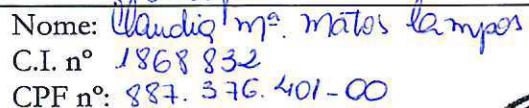 Nome: Claudia Mª. Matos Campos
C.I. nº 1868832
CPF nº: 887.376.401-00